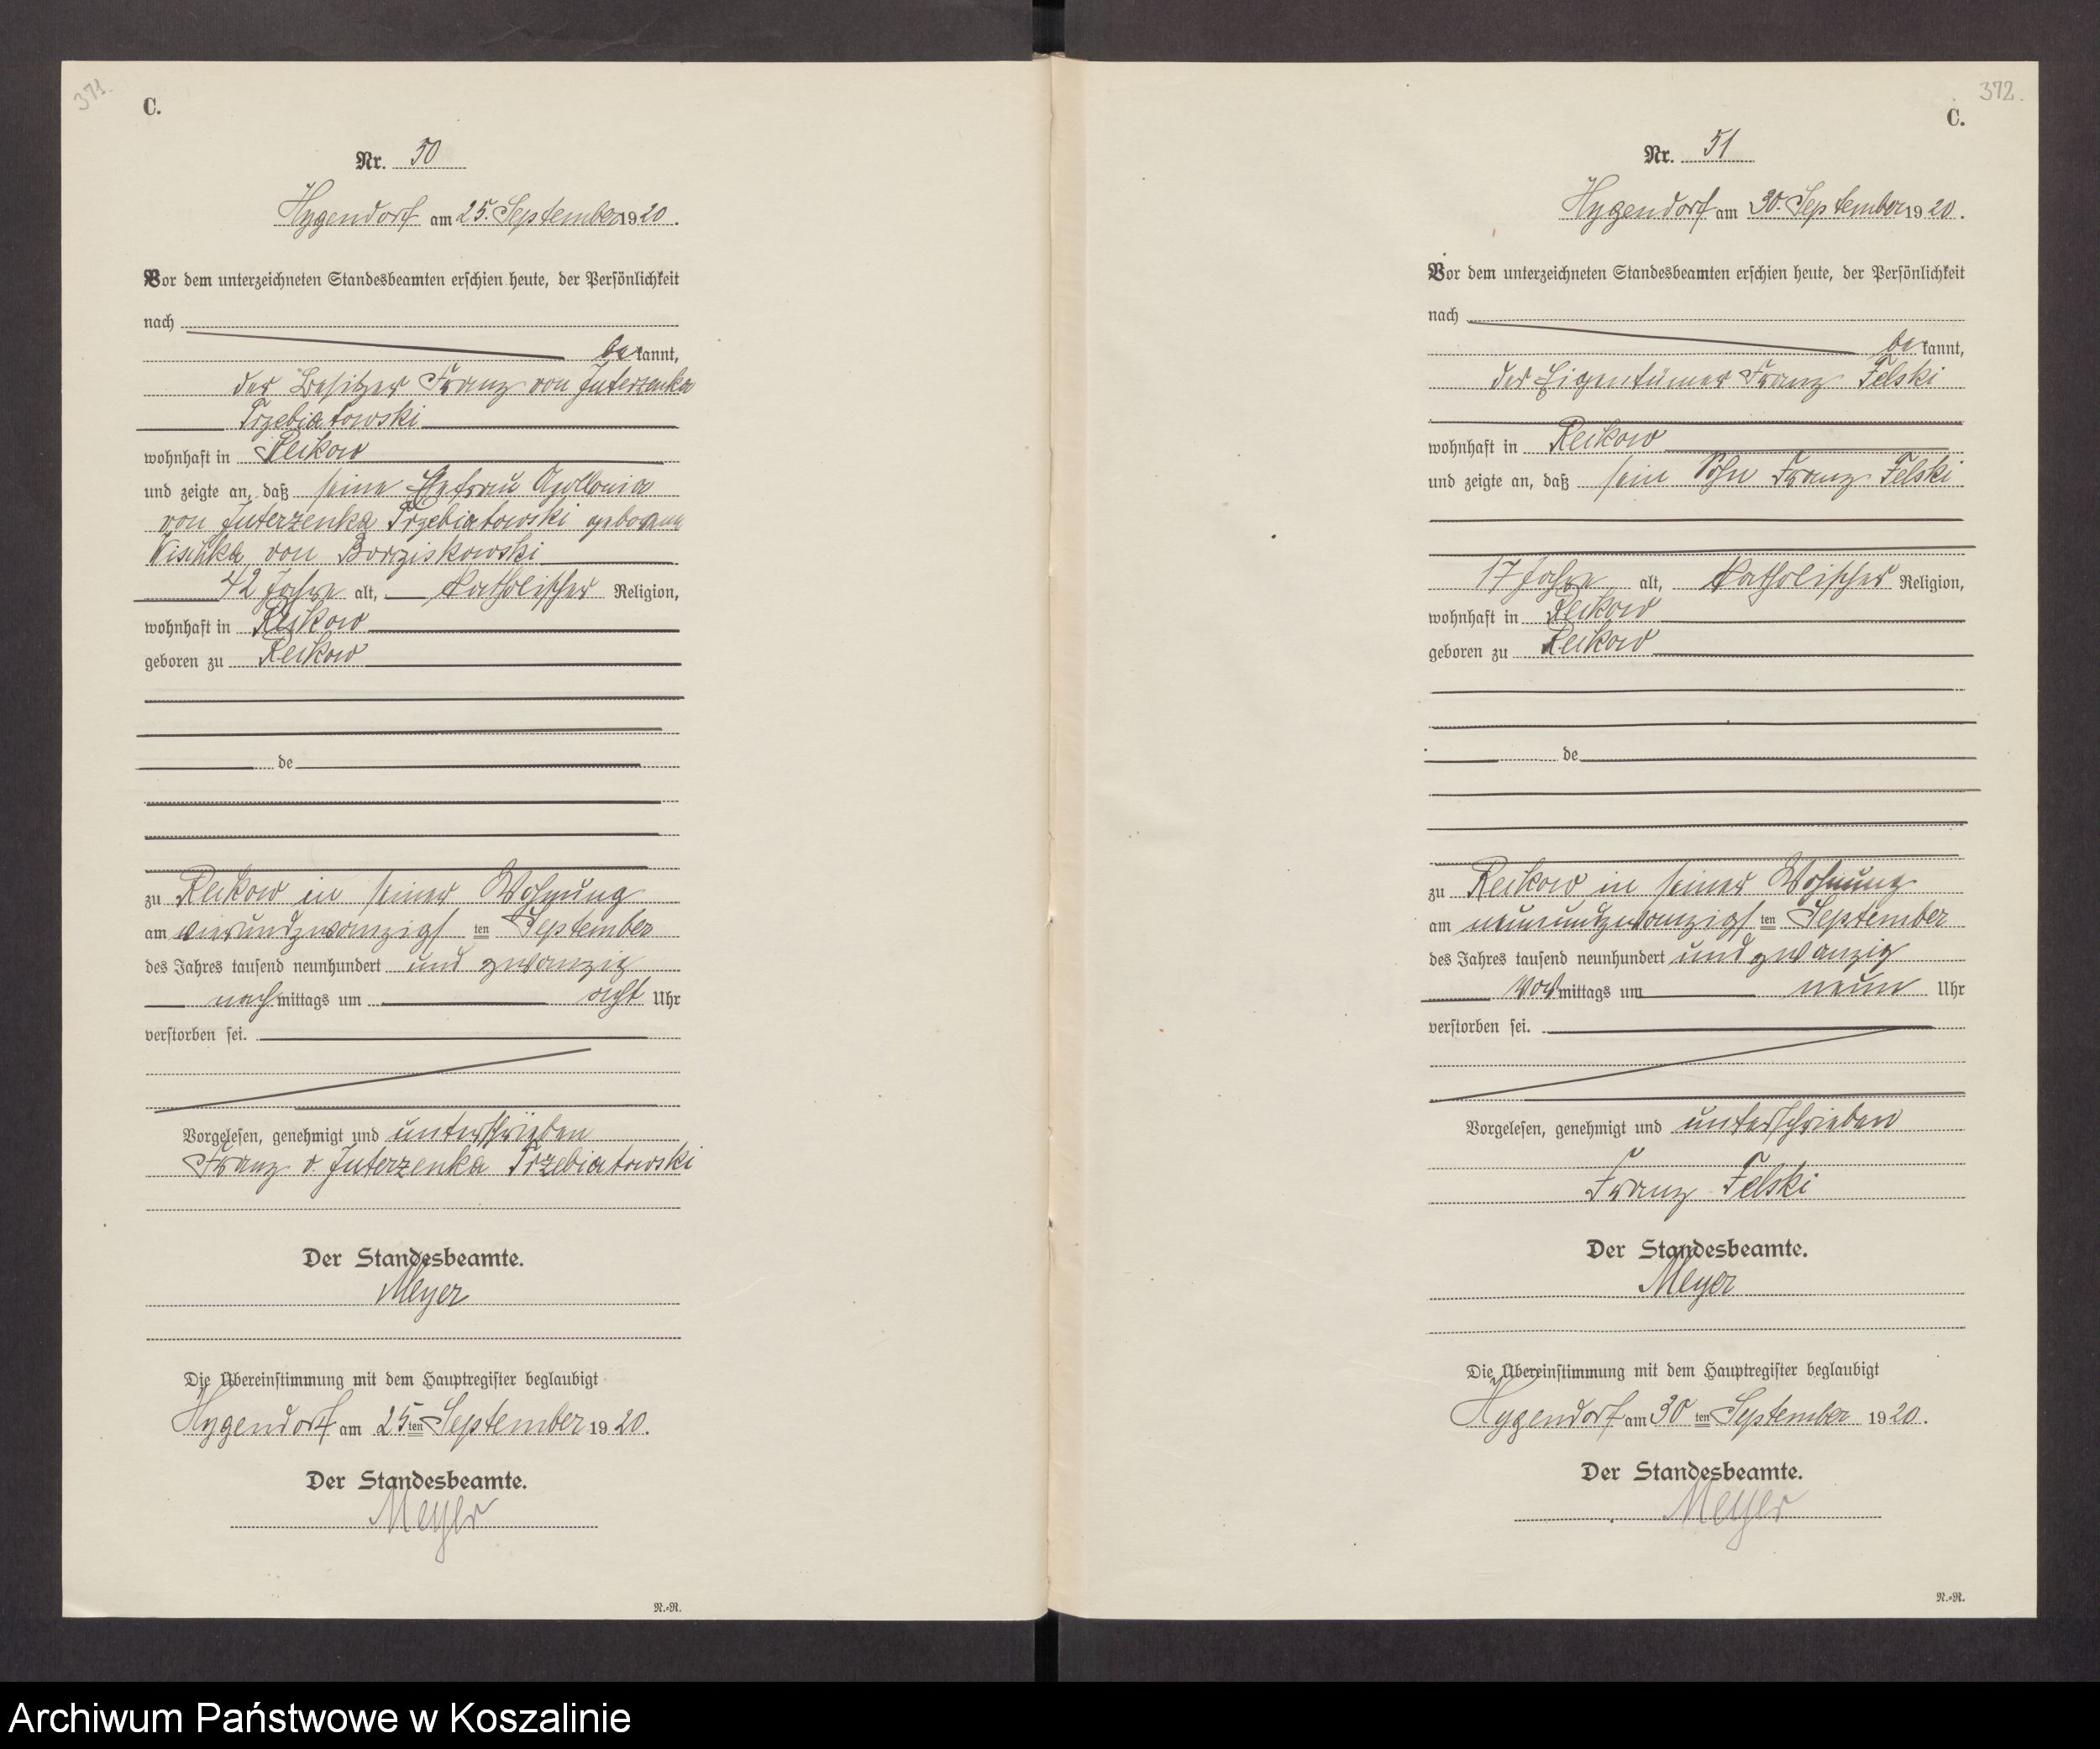 371.
C.
Nr. 50
Hygendorf am 25. September 1920.
Vor dem unterzeichneten Standesbeamten erschien heute, der Persönlichkeit
nach
bekannt,
der Besitzer Franz von Juterzenka
Trzebiatowski
wohnhaft in Reikow
und zeigte an, daß seine Ehefrau Apollonia
von Juterzenka Trzebiatowski geborene
von
42 Jahre alt, katholischer Religion,
wohnhaft in Reikow
geboren zu Reikow
de
zu Reikow in seiner Wohnung
am vierundzwanzigsten September
des Jahres tausend neunhundert und zwanzig
nachmittags um acht Uhr
verstorben sei.
Vorgelesen, genehmigt und unterschrieben
Franz v. Juterzenka Trzebiatowski
Der Standesbeamte.
Meyer
Die Übereinstimmung mit dem Hauptregister beglaubigt
Hygendorf am 25ten September 1920.
Der Standesbeamte.
Meyer
N.-N.
372.
C.
Nr. 51
Hygendorf am 30. September 1920.
Vor dem unterzeichneten Standesbeamten erschien heute, der Persönlichkeit
nach
bekannt,
der Eigentümer Franz Felski
wohnhaft in Reikow
und zeigte an, daß sein Sohn Franz Felski
17 Jahre alt, katholischer Religion,
wohnhaft in Reikow
geboren zu Reikow
de
zu Reikow in seiner Wohnung
am neunundzwanzigsten September
des Jahres tausend neunhundert und zwanzig
Vormittags um neun Uhr
verstorben sei.
Vorgelesen, genehmigt und unterschrieben
Franz Felski
Der Standesbeamte.
Meyer
Die Übereinstimmung mit dem Hauptregister beglaubigt
Hygendorf am 30ten September 1920.
Der Standesbeamte.
Meyer
N.-N.
Archiwum Państwowe w Koszalinie